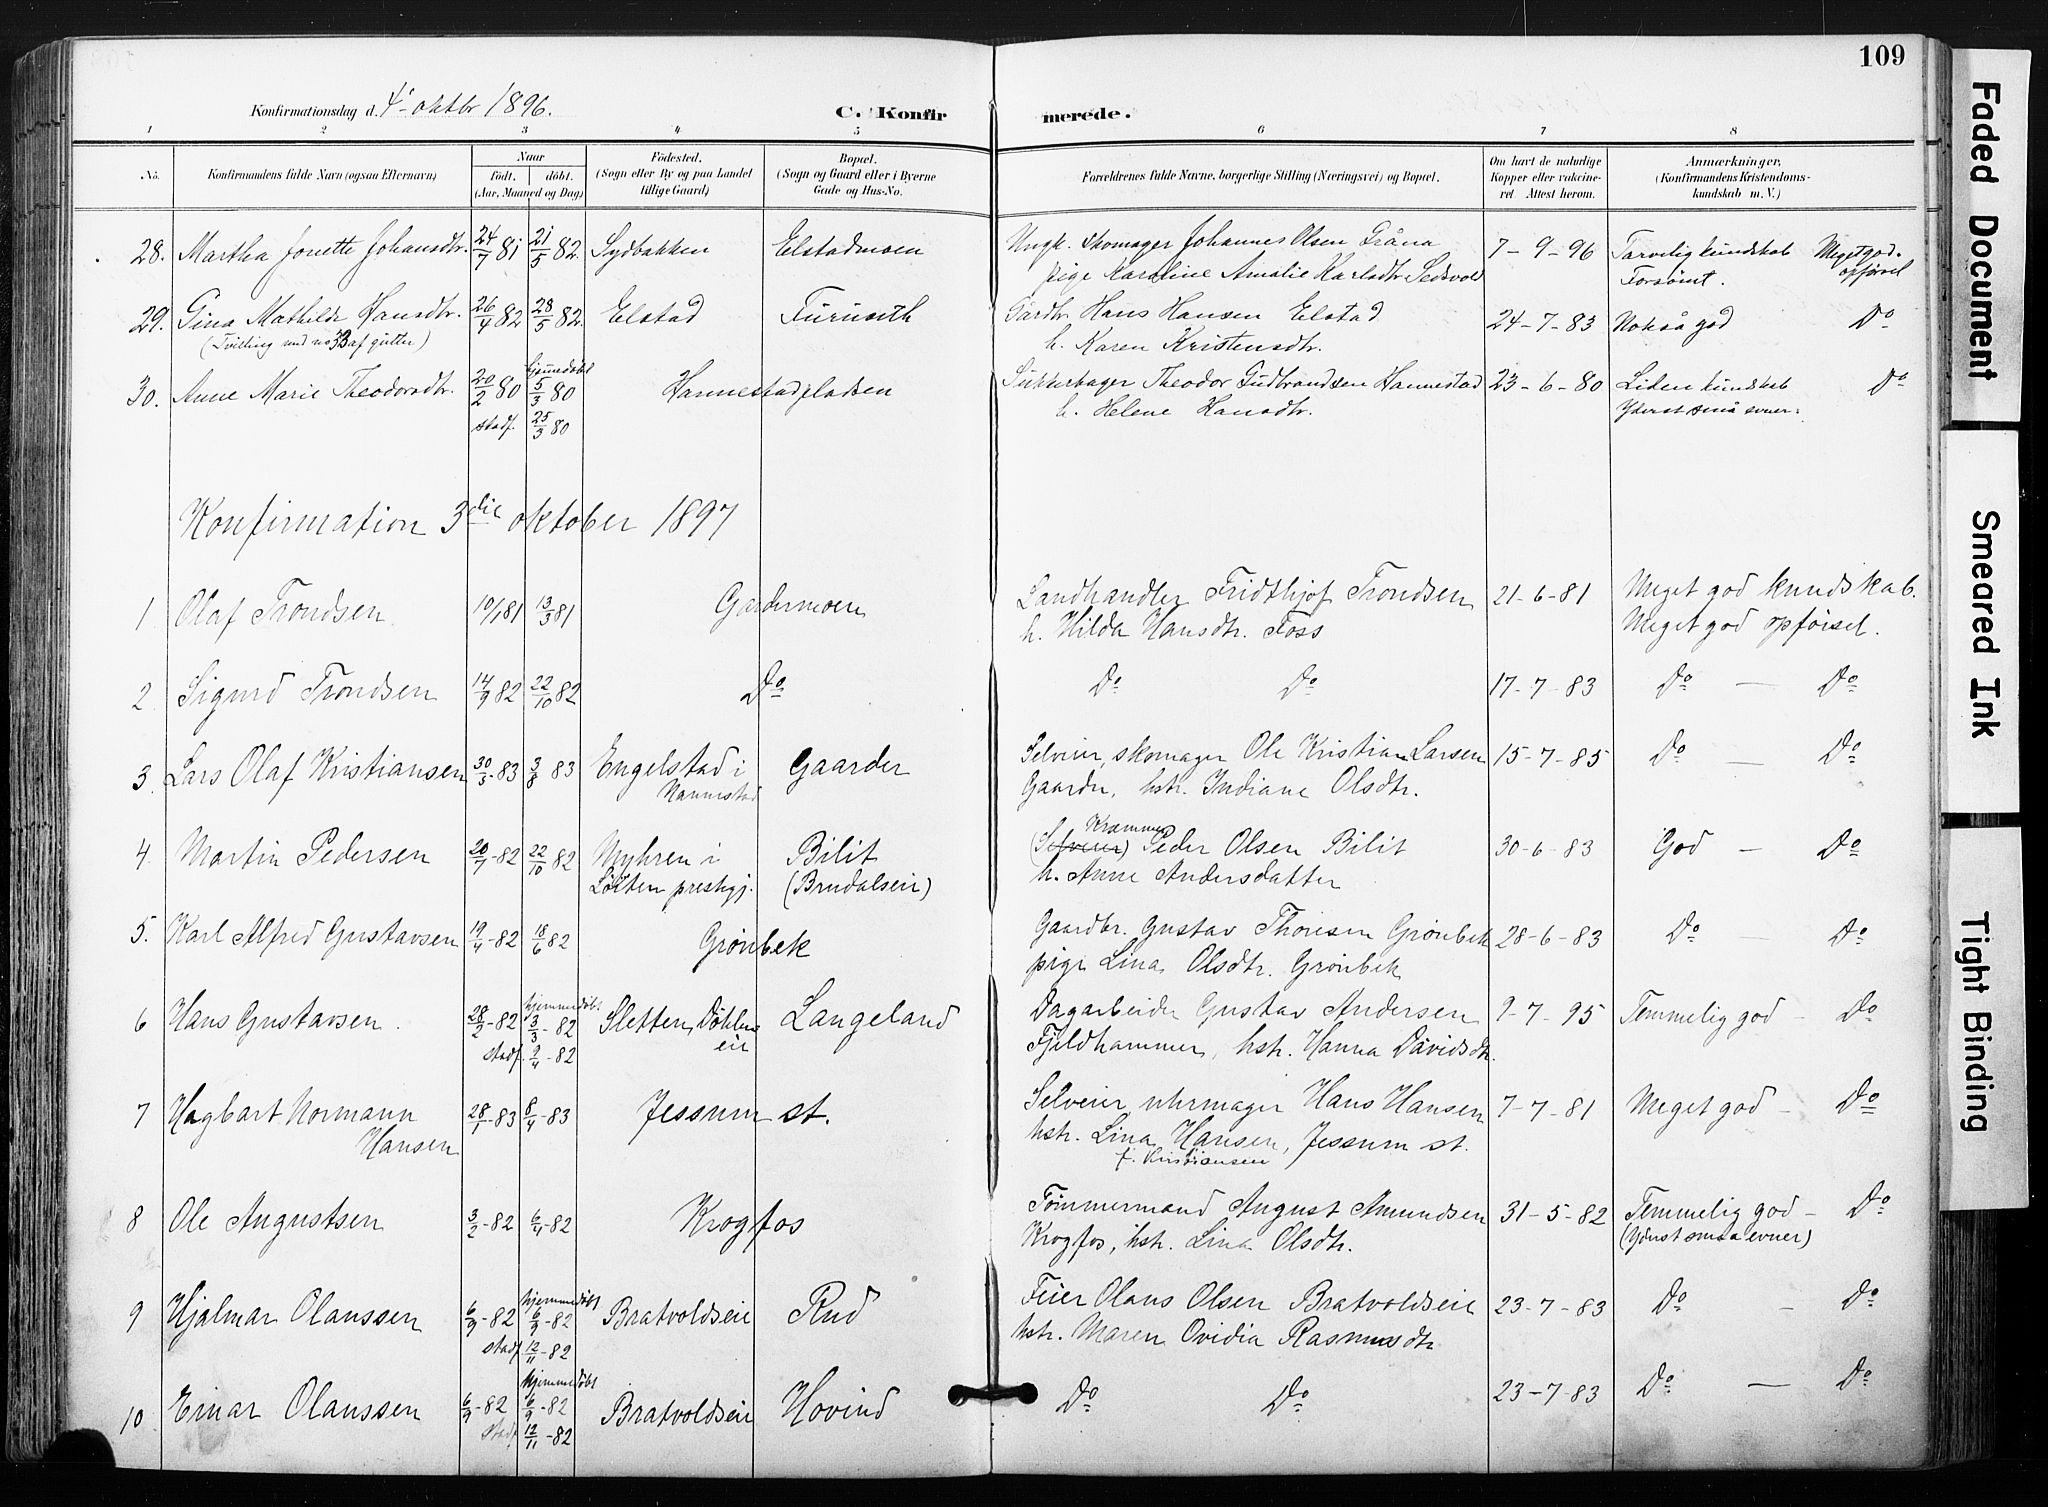 109
Konfirmationsdag d. 4' oktbr 1896.
C. Konfirmerede.
1 2 3 4 5 6 7 8
No. Konfirmandens fulde Navn (ogsaa Efternavn) Naar Födt. döbt. (Aar, Maaned og Dag) Födested. (Sogn eller By og paa Landet tillige Gaard) Bopæl. (Sogn og Gaard eller i Byerne Gade og Hus-No.) Forældrenes fulde Navne, borgerlige Stilling (Næringsvei) og Bopæl. Om havt de naturlige Kopper eller vakcineret Attest herom. Anmærkninger, (Konfirmandens Kristendomskundskab m. V.)
28. Martha Jonette Johansdtr. 24/7 81 21/5 82. Sydbakken Elstadmoen Ungk. Skomager Johannes Olsen Tråna 7-9-96 Tarvelig kundskab Meget god.
pige Karoline Amalie Karlsdtr Forsømt. opførsel
29. Gina Mathilde Hansdtr. 26/4 82 28/5 82. Elstad Furuseth Gårdbr. Hans Hansen Elstad 24-7-83 Nokså god Do
(Tvilling med no 33 af gutter) h. Karen Kristensdtr.
30. Anne Marie Theodorsdtr. 20/2 80 hjemmedøbt 5/3 80 Hannestadpladsen Theodor Gudbrandsen Hannestad 23-6-80 Liden kundskab Do
stadf. 25/3 80 h. Helene Hansdtr. Yderst små evner.
Konfirmation 3die oktober 1897
1 Olaf Trondsen 10/1 81 13/3 81 Gardermoen Landhandler Fridthjof Trondsen 21-6-81 Meget god kundskab.
h. Hilda Hansdtr. Foss Meget god opførsel.
2 Sigurd Trondsen 14/9 82 22/10 82 Do Do Do 17-7-83 Do — Do
3 Lars Olaf Kristiansen 30/5-83 3/8 83 Engelstad i Gaarder Selveier, skomager Ole Kristian Larsen 15-7-85 Do — Do
Nannestad Gaarder, hstr. Indiane Olsdtr.
4. Martin Pedersen 20/7-82 22/10 82 Myhren i Bilit (Selveier) Kræmmer Peder Olsen Bilit 30-6-83 God — Do
Løiten prestgj. (Brudalseie) h. Anne Andersdatter
5. Karl Alfred Gustavsen 19/4-82 18/6 82 Grønbek Gaardbr. Gustav Thoresen Grønbek 28-6-83 Do — Do
pige Lina Olsdtr. Grønbek
6 Hans Gustavsen. 28/2-82 hjemmedøbt 3/3-82 Sletten, Døhlen Langeland Dagarbeider Gustav Andersen 9-7-95 Temmelig god — Do
stadf. 9/4-82 eie Fjeldhammer, hstr. Hanna Davidsdtr.
7 Hagbart Normann 28/1-83 8/4-83 Jessum st. Selveier, uhrmager Hans Hansen 7-7-81 Meget god — Do
Hansen hstr. Lina Hansen, Jessum st.
f. Kristiansen
8 Ole Augustsen 3/2-82 6/4-82 Krogfos Tømmermand August Amundsen 31-5-82 Temmelig god — Do
Krogfos, hstr. Lina Olsdtr. (Yderst smaa evner)
9 Hjalmar Olaussen 6/9-82 hjemmedøbt 6/9-82 Bratvoldseie Rud Feier Olaus Olsen Bratvoldseie 23-7-83 Do — Do
stadf. 12/11-82 hstr. Maren Ovidia Rasmusdtr
10 Einar Olaussen 6/9-82 hjemmedøbt 6/9-82 Bratvoldseie Hovind Do Do 23-7-83 Do — Do
stadf. 12/11-82
Faded Document
Smeared Ink
Tight Binding